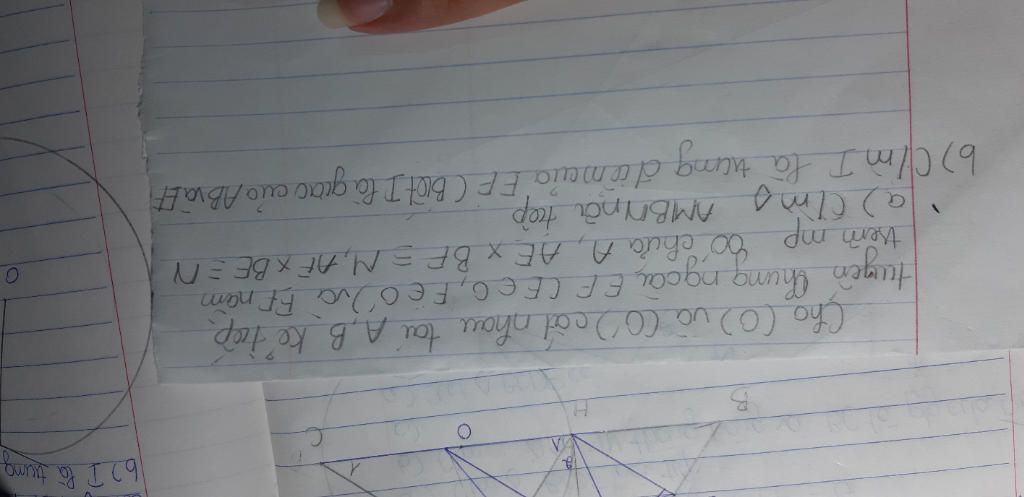 Cho (O) và (O') cắt nhau tại A, B kẻ tiếp
tuyến chung ngoài EF (E∈O, F∈O') và EF nằm
trên mp bờ chứa A, AE × BF ≡ M, AF × BE ≡ N
a) C/m ◊ AMBN nội tiếp
b) C/m I là trung điểm của EF (Biết I là giao của AB và EF
B
H
O
C
1
2
1
O
b) I là trung